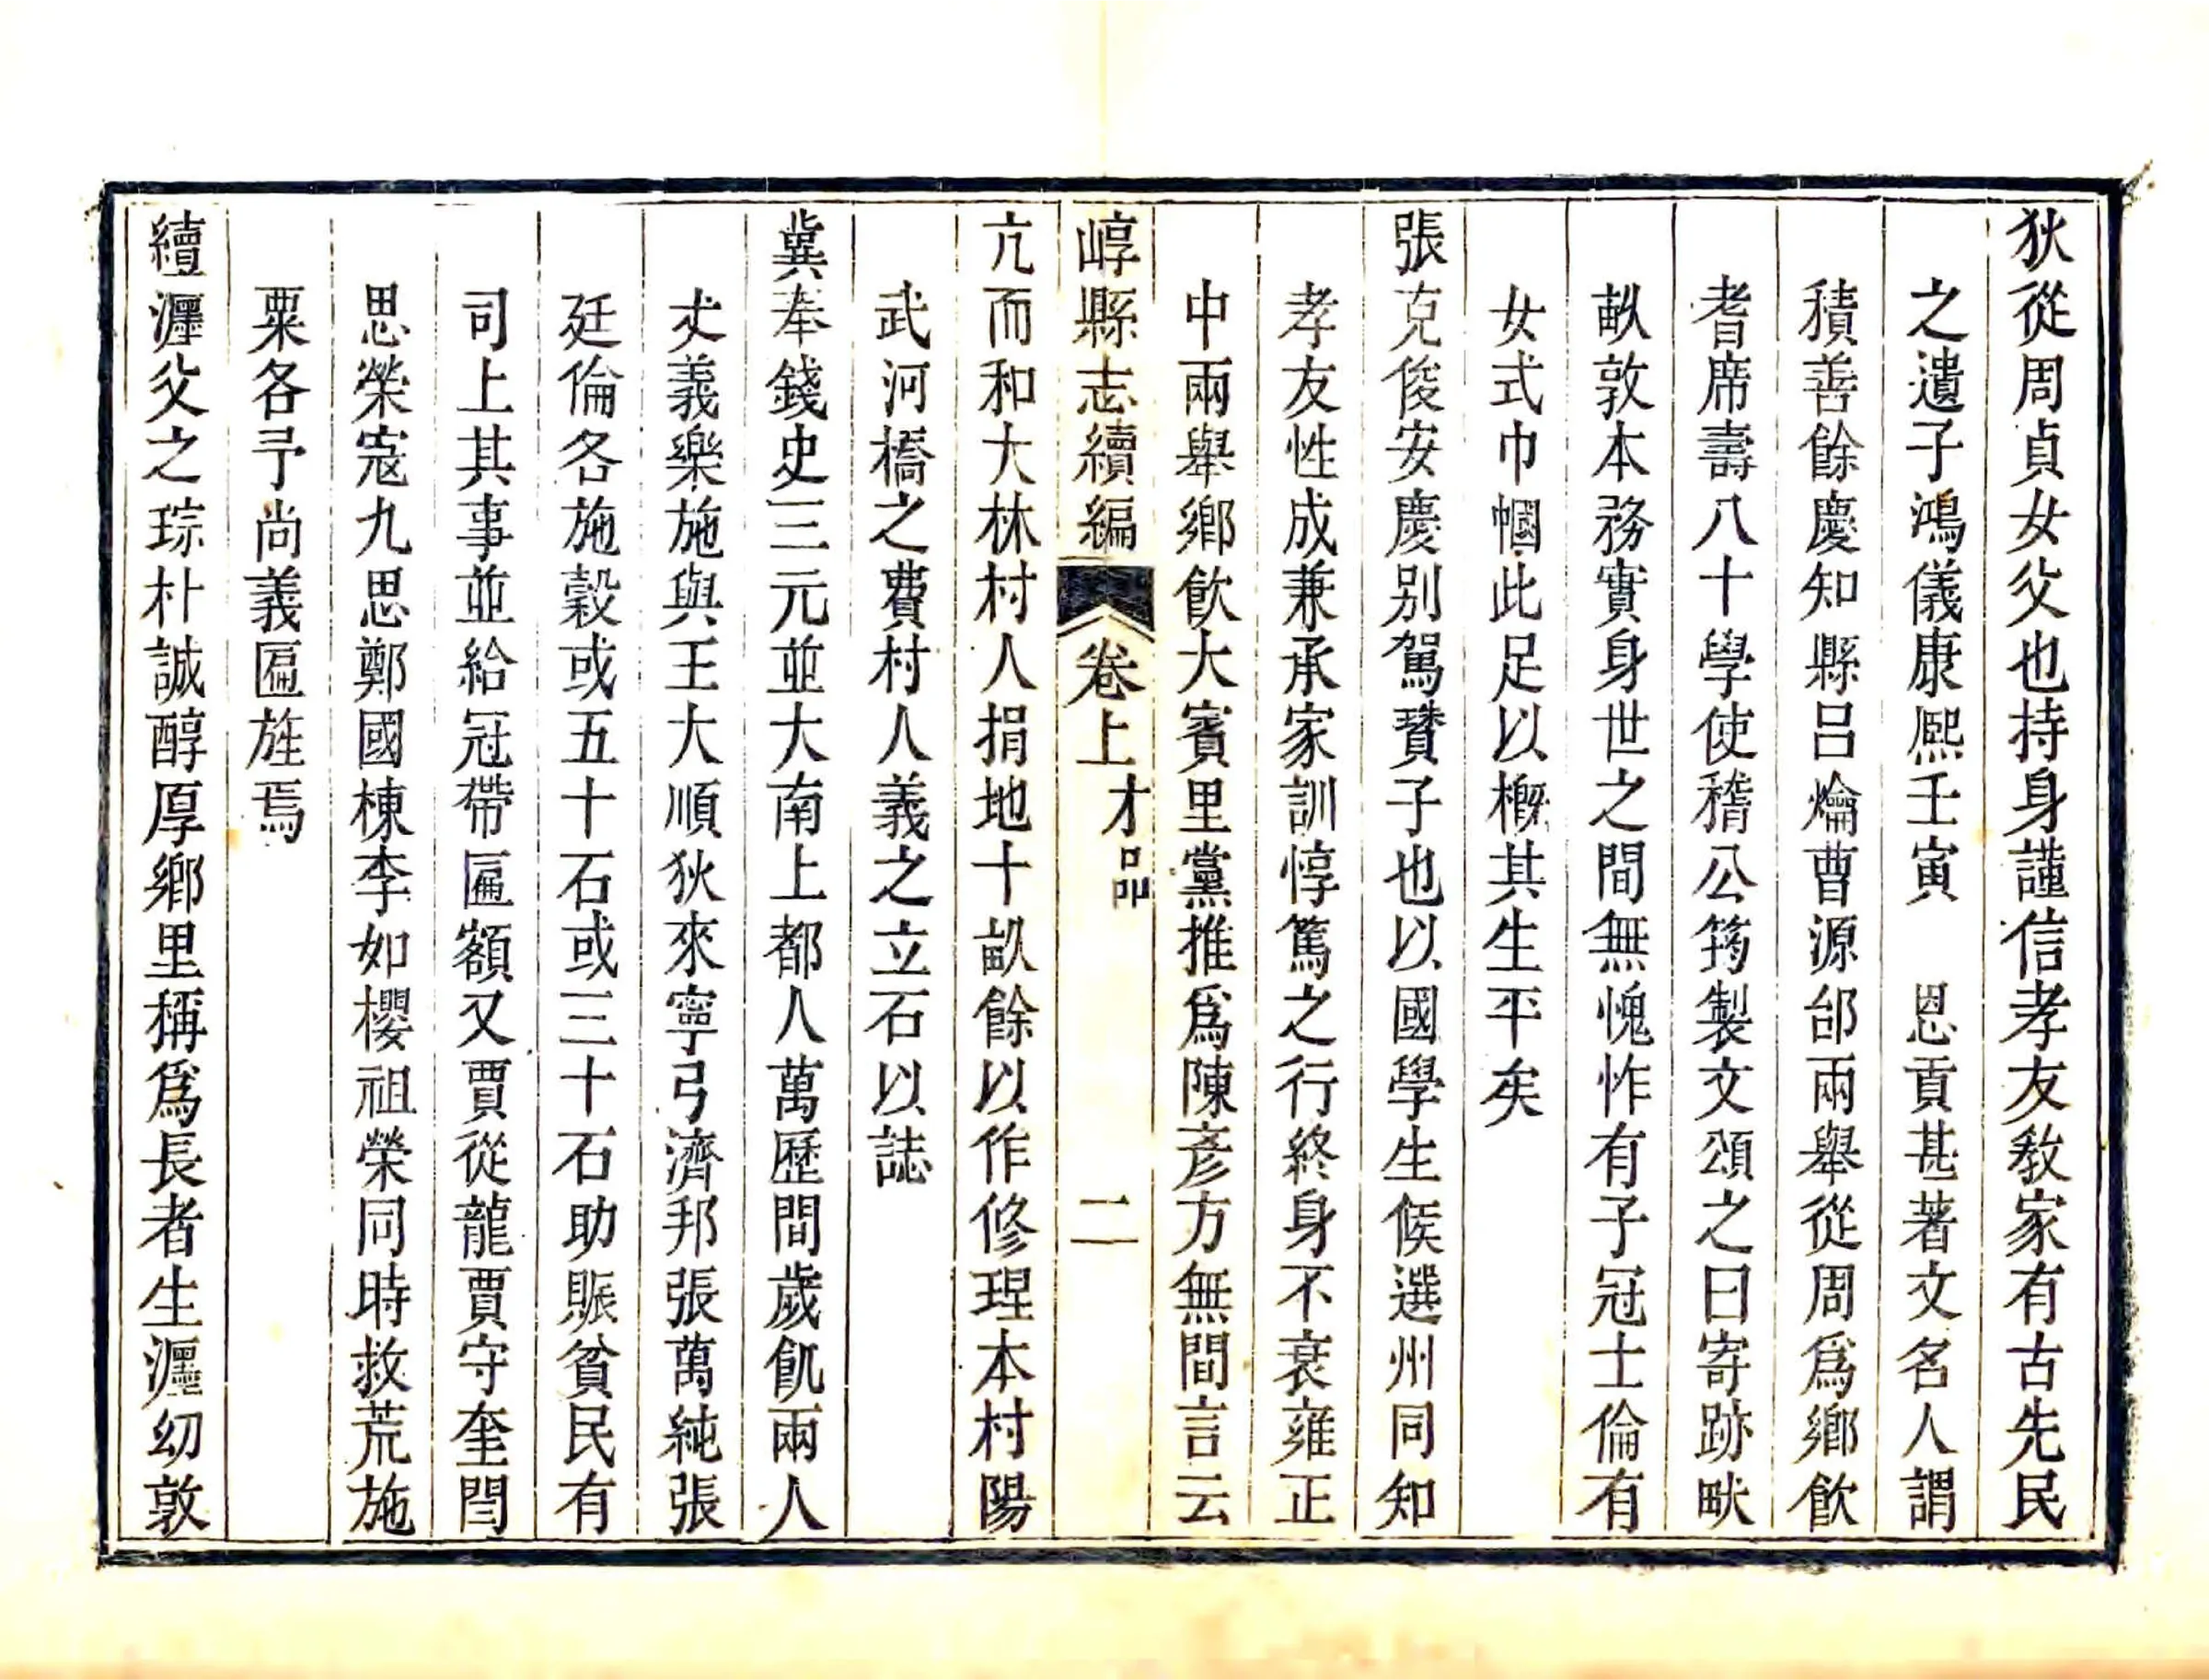 狄從周貞女父也持身謹信孝友教家有古先民
之遺子鴻儀康熙壬寅　恩貢甚著文名人謂
積善餘慶知縣呂爚曹源邰兩舉從周爲鄉飮
耆席壽八十學使稽公筠製文頌之曰寄跡畎
畝敦本務實身世之間無愧怍有子冠士倫有
女式巾幗此足以概其生平矣
張克俊安慶別駕賛子也以國學生候選州同知
孝友性成兼承家訓惇篤之行終身不衰雍正
中兩舉鄉飮大賓里黨推爲陳彥方無間言云
崞縣志續編　卷上　才品　二
亢而和大林村人捐地十畝餘以作修理本村陽
武河橋之費村人義之立石以誌
冀奉錢史三元並大南上都人萬歷間歲飢兩人
𠀋義樂施與王大順狄來寧弓濟邦張萬純張
廷倫各施穀或五十石或三十石助賑貧民有
司上其事並給冠帶匾額又賈從龍賈守奎閆
思榮寇九思鄭國棟李如櫻祖榮同時救荒施
粟各予尚義匾旌焉
續㶍父之琮朴誠醇厚鄉里稱爲長者生㶍幼敦